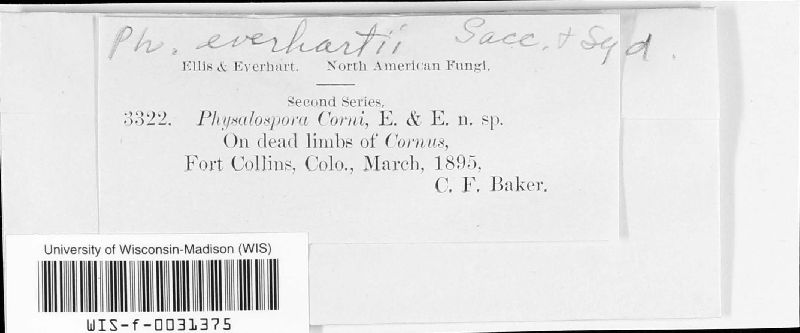 Ph. everhartii Sacc. & Syd.
Ellis & Everhart. North American Fungi.
Second Series.
3322. Physalospora Corni, E. & E. n. sp.
On dead limbs of Cornus,
Fort Collins, Colo., March, 1895.
C. F. Baker.
University of Wisconsin-Madison (WIS)
WIS-f-0031375